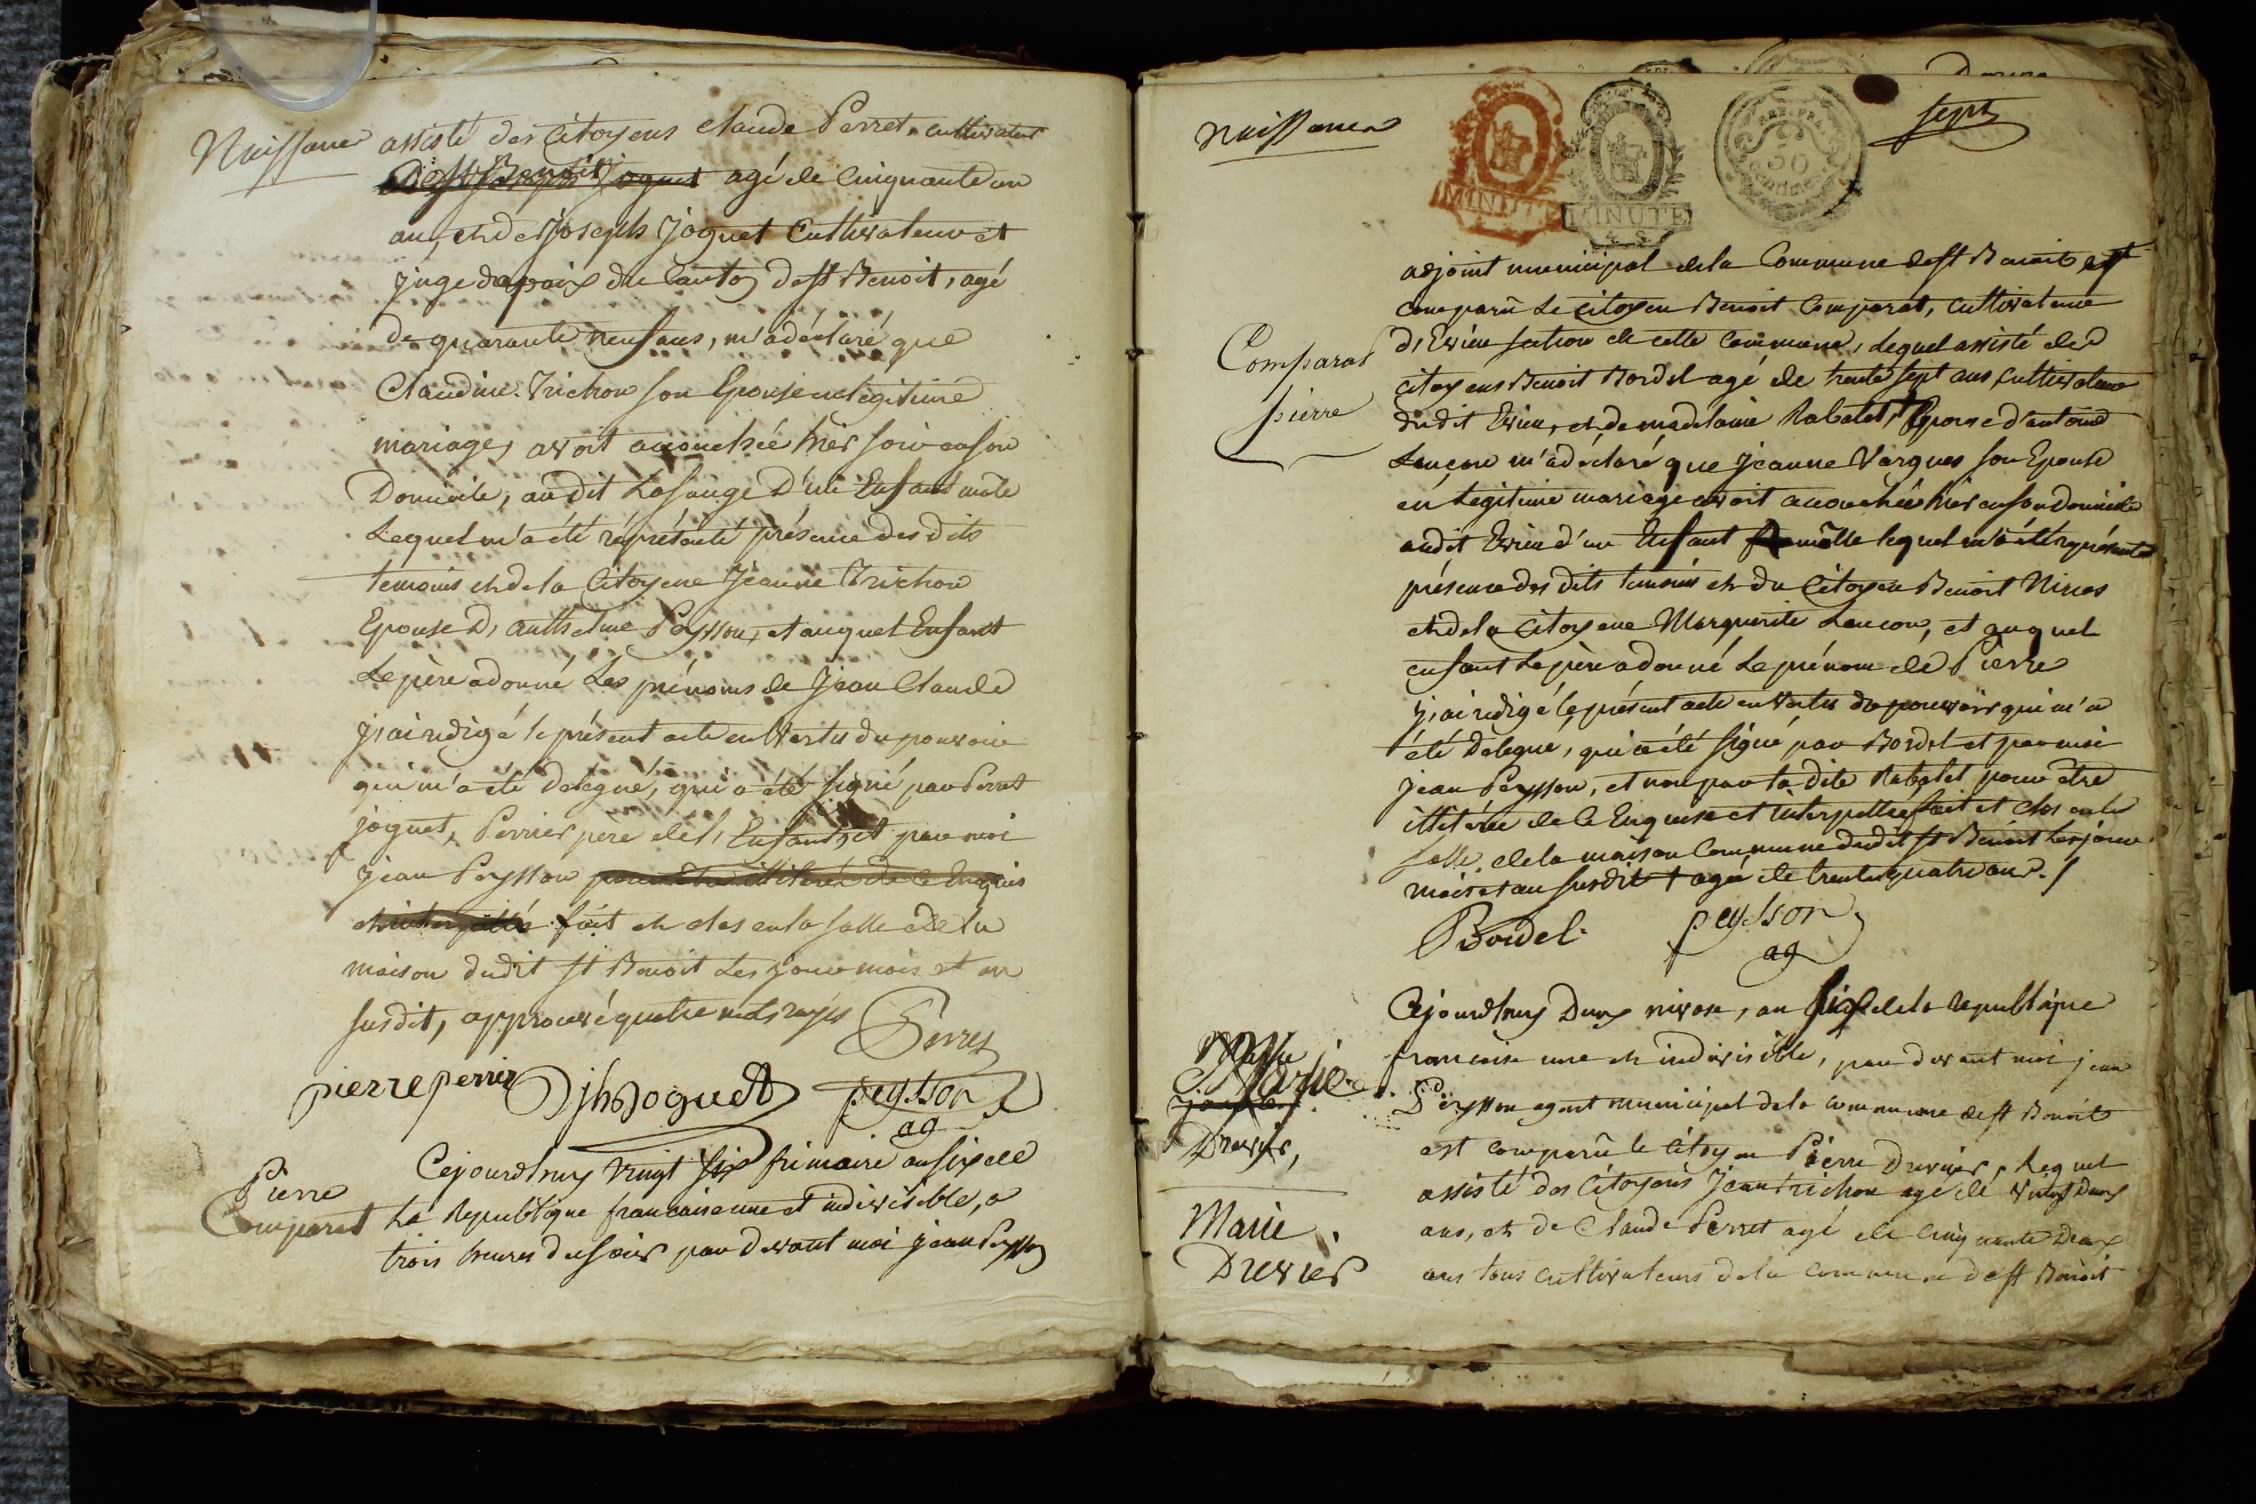 Naissance
assisté des Citoyens Claude Perret, cultivateur
agé de Cinquante un
an, et de joseph Joguet Cultivateur et
juge de paix du Canton de St Benoit, agé
de quarante neuf ans, m'a déclaré que
Claudine Trichon son Epouse en légitime
mariage, avoit accouchée hier soir en son
Domicile, au dit d'un Enfant mâle
Lequel m'a été réprésenté présence des dits
temoins et de la Citoyene Jeanne Trichon
Epouse D'anthelme Peysson, et auquel Enfant
Le père a donné Les prénoms de Jean Claude
j'ai redigé le présent acte en Vertu du pouvoir
qui m'a été délégué, qui a été signé par Perret
joguet, Perrier pere de l'Enfant, et par moi
Jean Peysson pour être illiteré de ce Enquis
et interpellé fait et clos en la salle de la
maison dudit St Benoit Les jour mois et an
susdit, approuvé quatre mots rayés
Perret
pierre perrier Jph Joguet peysson
ag
Pierre
Comparat
Cejourd'huy vingt six frimaire an six de
La République francaise une et indivisible, a
trois heures du soir par devant moi jean Peysson
Naissances
sept
MINUTE
MINUTE
4 S
50
adjoint municipal de la Commune de St Benoit est
comparû Le Citoyen Benoit Comparat, cultivateur
d'Evieu section de cette commune, Lequel assisté des
Comparat
pierre
citoyens Benoit Bordel agé de trente sept ans cultivateur
dudit Evieu, et de madelaine Rabatet, † Epouse d'antoine
Lançon m'a déclaré que Jeanne Vargues son Epouse
en Legitime mariage avoit accouchée hier en son domicile
audit Evieu d'un Enfant mâlle lequel m'a été réprésenté
présence des dits temoins et du Citoyen Benoit
et de la Citoyene Marguerite Lancon, et auquel
enfant Le père a donné Le prénom de Pierre
j'ai redigé le présent acte en vertu du pouvoir qui m'a
été délégué, qui a été signé par Bordel et par moi
Jean Peysson, et non par la dite Rabatet pour être
illiterée de ce Enquise et interpellée fait et clos en la
salle de la maison Commune dudit St Benoit Les jour
mois et an susdit † agée de trente quatre ans./
Bordel peysson
ag
Cejourd'huy Deux nivose, an six de la republique
francaise une et indivisible, par devant moi jean
Peysson agent municipal de la commune de St Benoit
Marie
Drevier,
est comparû le Citoyen Pierre Drevier, Lequel
assisté des Citoyens Jean trichon agé de vingt Deux
Marie
Drevier
ans, et de Claude Perret agé de Cinquante Deux
ans tous cultivateurs de la commune de St Benoit